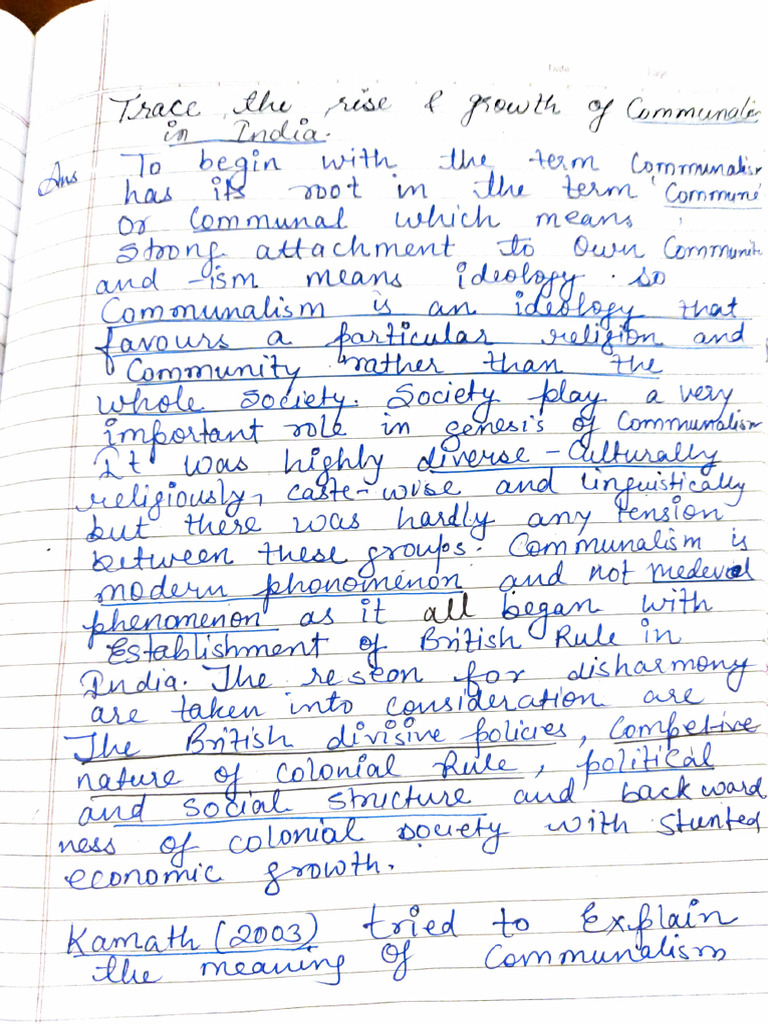 Trace the rise & growth of Communali
in India.
Ans To begin with the term Communalism
has its root in the term 'Commune'
or Communal which means
strong attachment to own Community
and -ism means ideology. so
Communalism is an ideology that
favours a particular religion and
Community rather than the
whole society. Society play a very
important role in genesis of Communalism
It was highly diverse - Culturally
religiously, caste-wise and linguistically
but there was hardly any tension
between these groups. Communalism is
modern phonomenon and not medeval
phenomenon as it all began with
Establishment of British Rule in
India. The reseon for disharmony
are taken into consideration are
The British divisive policies, Competive
nature of colonial Rule, political
and social structure and backward
ness of colonial society with stunted
economic growth.
Kamath (2003) tried to Explain
the meaning of Communalism